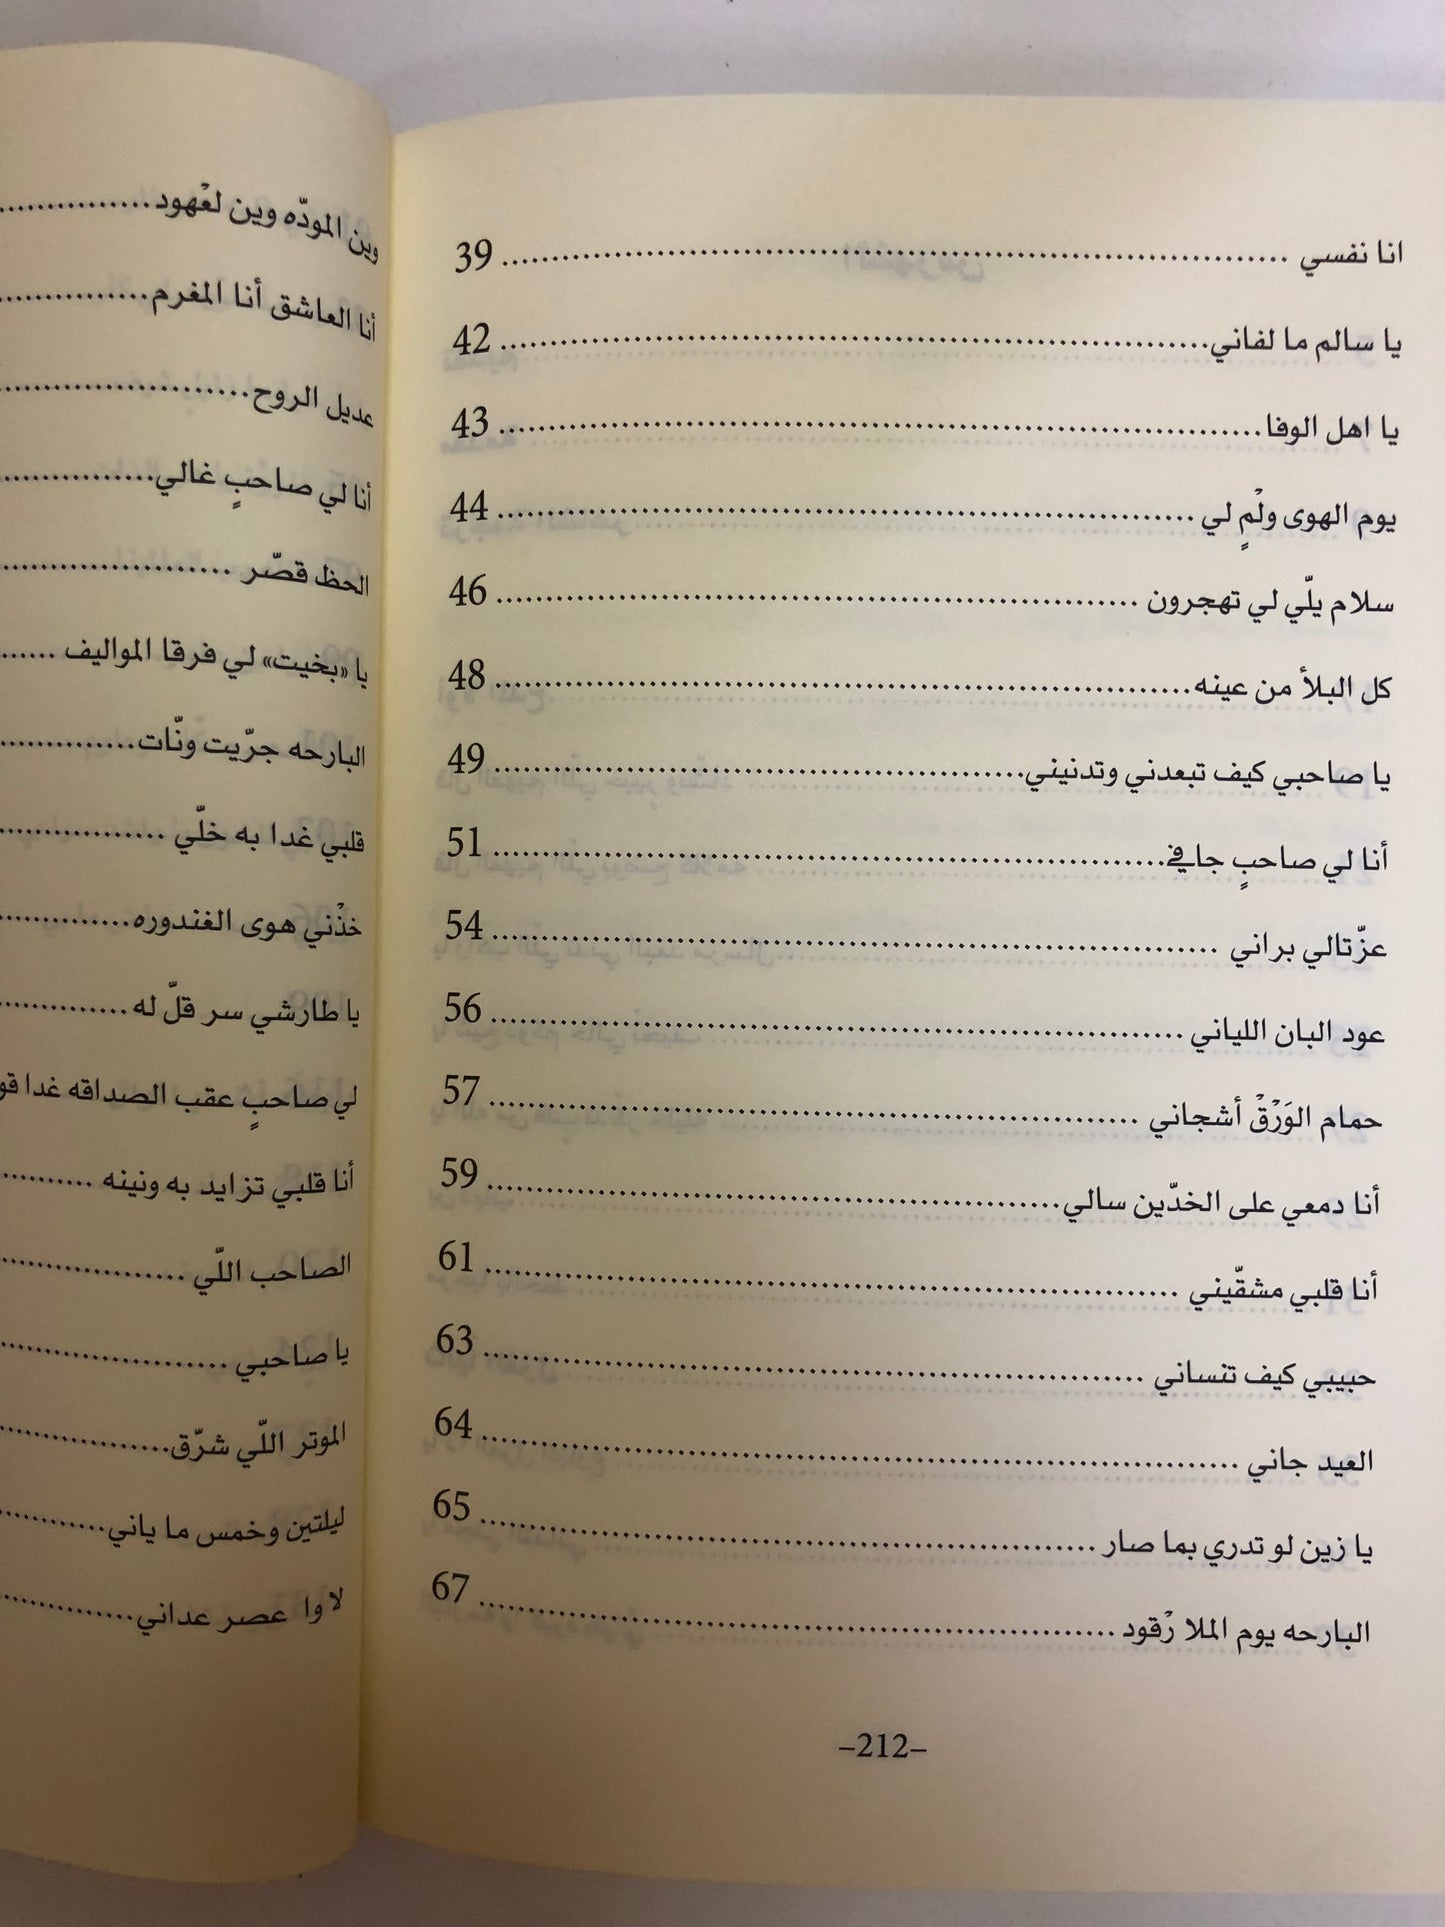 انا نفسي ........ 39
يا سالم ما لفاني ........ 42
يا اهل الوفا ........ 43
يوم الهوى ولْمٍ لي ........ 44
سلام يلّي لي تهجرون ........ 46
كل البلأ من عينه ........ 48
يا صاحبي كيف تبعدني وتدنيني ........ 49
أنا لي صاحبٍ جافي ........ 51
عزّتالي براني ........ 54
عود البان اللياني ........ 56
حمام الوَرْقْ أشجاني ........ 57
أنا دمعي على الخدّين سالي ........ 59
أنا قلبي مشقّيني ........ 61
حبيبي كيف تنساني ........ 63
العيد جاني ........ 64
يا زين لو تدري بما صار ........ 65
البارحه يوم الملا رْقود ........ 67
–212–
وين المودّه وين لعْهود ........
أنا العاشق أنا المغرم ........
عديل الروح ........
أنا لي صاحبٍ غالي ........
الحظ قصّر ........
يا «بخيت» لي فرقا المواليف ........
البارحه جرّيت ونّات ........
قلبي غدا به خلّي ........
خذْني هوى الغندوره ........
يا طارشي سر قلّ له ........
لي صاحبٍ عقب الصداقه غدا
أنا قلبي تزايد به ونينه ........
الصاحب اللّي ........
يا صاحبي ........
الموتر اللّي شرّق ........
ليلتين وخمس ما ياني ........
لا وا عصر عداني ........